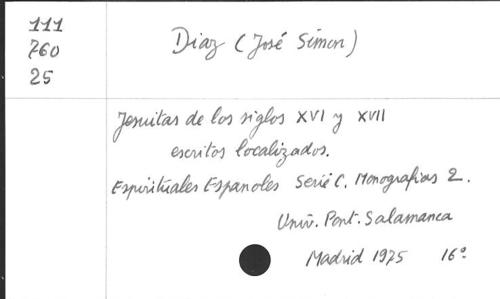 111
760
25
Diaz (José Simon)
Jesuitas de los siglos XVI y XVII
escritos localizados.
Espirituales Espanoles Serie C. Monografias 2.
Univ. Pont. Salamanca
Madrid 1975 16°